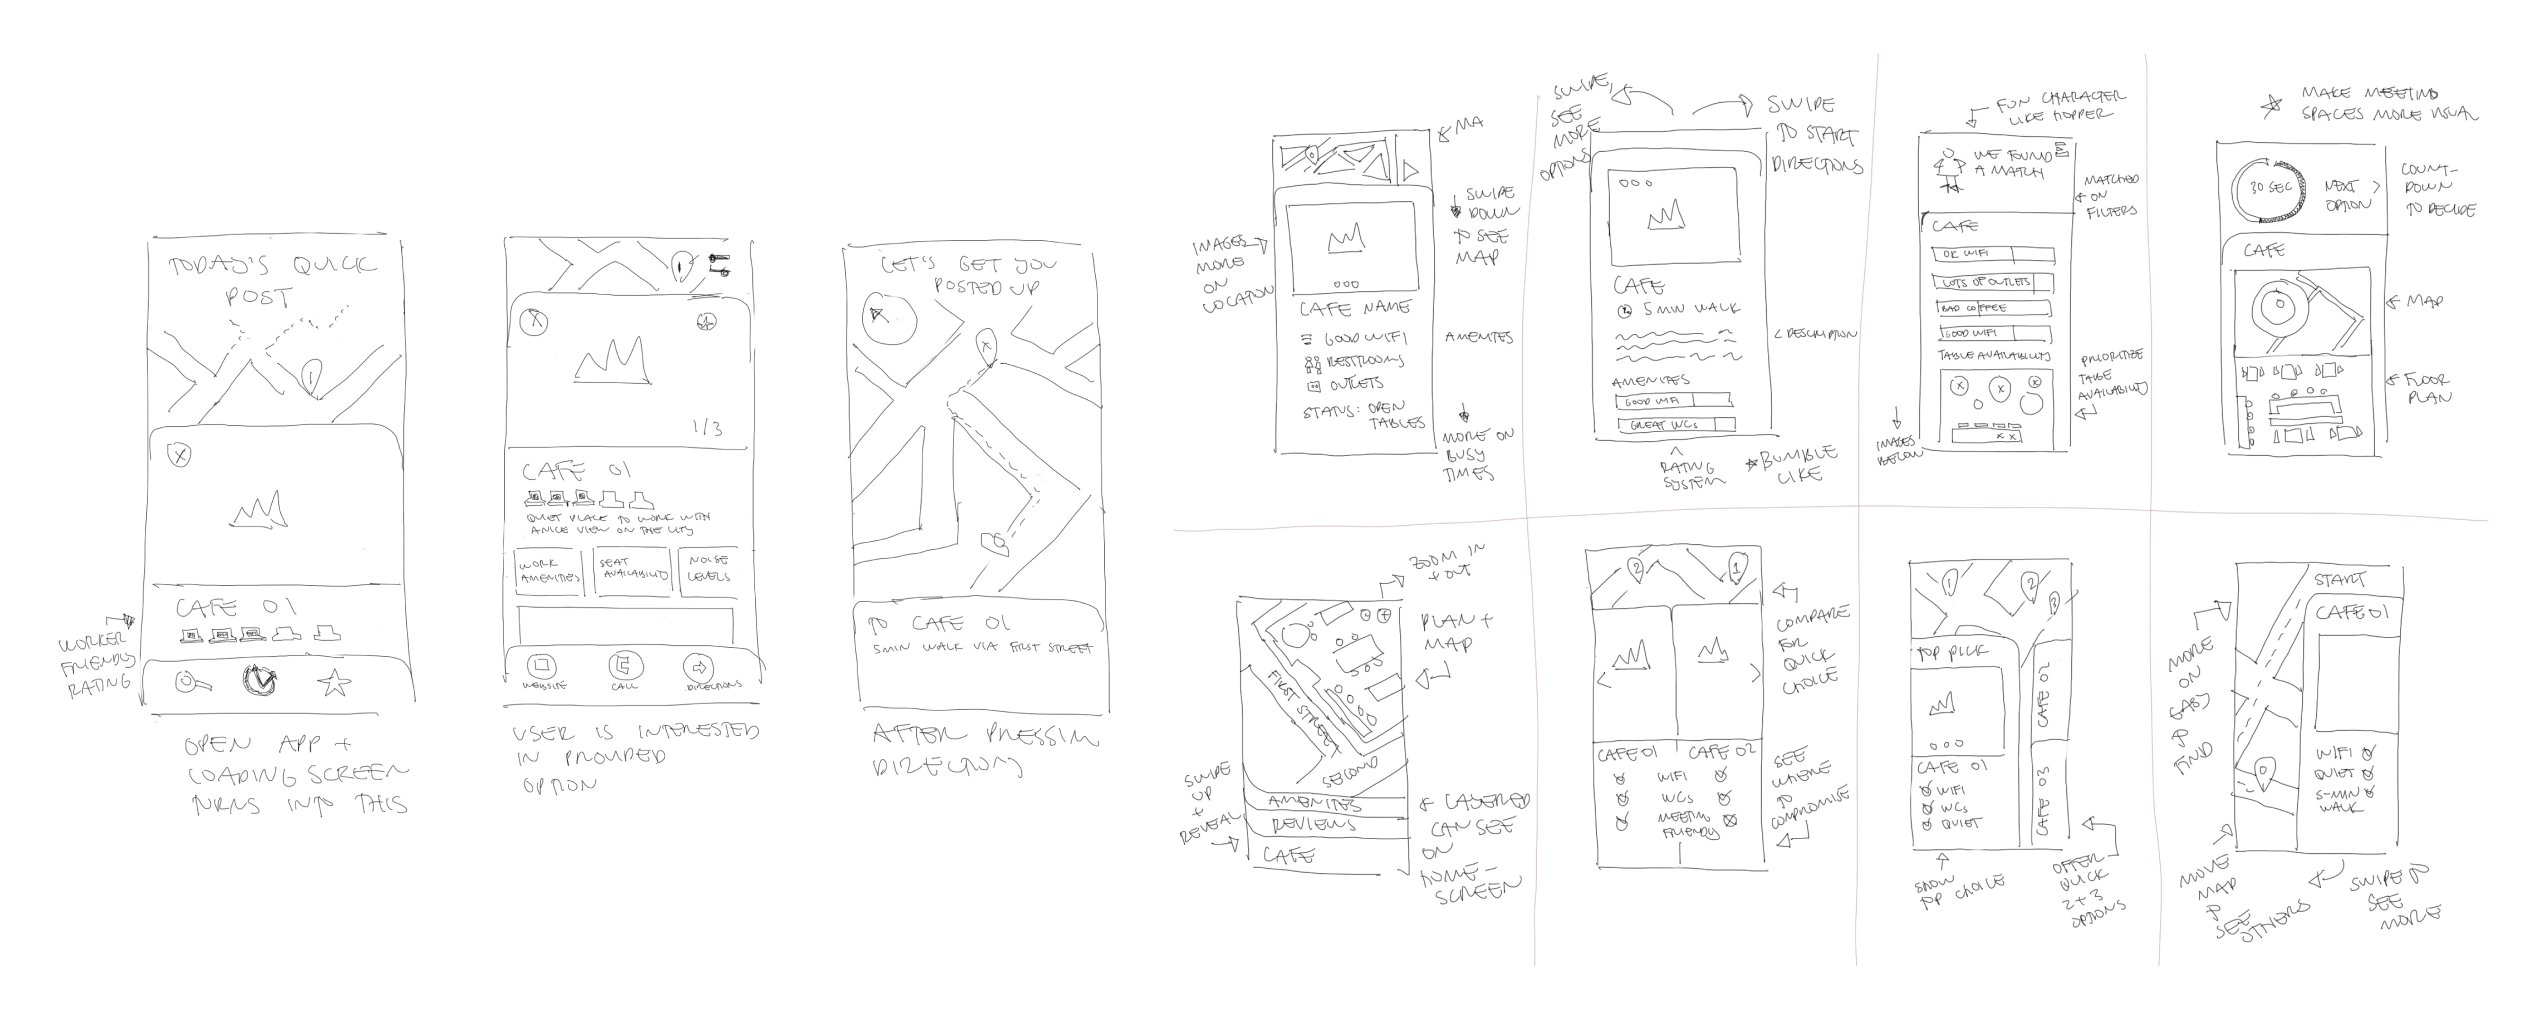 TODAY'S QUICK
POST
1
X
CAFE 01
WORKER
FRIENDLY
RATING
OPEN APP +
LOADING SCREEN
TURNS INTO THIS
1
X
1/3
CAFE 01
QUIET PLACE TO WORK WITH
A NICE VIEW ON THE CITY
WORK
AMENITIES
SEAT
AVAILABILITY
NOISE
LEVELS
WEBSITE
CALL
DIRECTIONS
USER IS INTERESTED
IN PROVIDED
OPTION
LET'S GET YOU
POSTED UP
X
TO CAFE 01
5 MIN WALK VIA FIRST STREET
AFTER PRESSIN
DIRECTORY
MA
IMAGES
MORE
ON
LOCATION
SWIPE
DOWN
TO SEE
MAP
CAFE NAME
GOOD WIFI
RESTROOMS
OUTLETS
STATUS: OPEN
TABLES
AMENITES
MORE ON
BUSY
TIMES
SWIPE,
SEE
MORE
OPTIONS
SWIPE
TO START
DIRECTIONS
CAFE
5 MIN WALK
< DESCRIPTION
AMENITES
GOOD WIFI
GREAT WCs
RATING
SYSTEM
BUMBLE
LIKE
FUN CHARACTER
LIKE HOPPER
WE FOUND
A MATCH
MATCHED
ON
FILTERS
CAFE
OK WIFI
LOTS OF OUTLETS
BAD COFFEE
GOOD WIFI
TABLE AVAILABILITY
X X X
X X
PRIORITIZE
TABLE
AVAILABILITY
IMAGES
BELOW
MAKE MEETING
SPACES MORE VISUAL
30 SEC
NEXT >
OPTION
COUNT-
DOWN
TO DECIDE
CAFE
MAP
FLOOR
PLAN
ZOOM IN
+ OUT
PLAN +
MAP
FIRST STREET
SECOND
AMENITES
REVIEWS
CAFE
SWIPE
UP
+
REVEAL
LAYERED
CAN SEE
ON
HOME-
SCREEN
2
1
COMPARE
FOR
QUICK
CHOICE
CAFE 01 CAFE 02
WIFI
WCs
MEETING
FRIENDLY
SEE
WHERE
TO
COMPROMISE
1
2
3
TOP PICK
CAFE 01
WIFI
WCs
QUIET
CAFE 02
CAFE 03
SHOW
TOP CHOICE
OFFER
QUICK
2 + 3
OPTIONS
MORE
ON
EASY
TO
FIND
START
CAFE 01
WIFI
QUIET
5-MIN
WALK
MOVE
MAP
TO
SEE
OTHERS
SWIPE TO
SEE
MORE